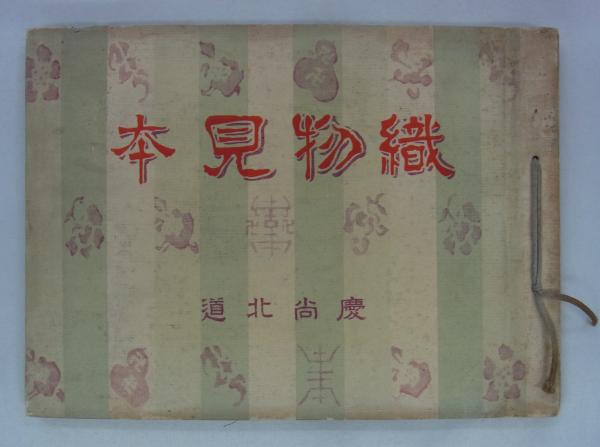 織物見本
慶尚北道